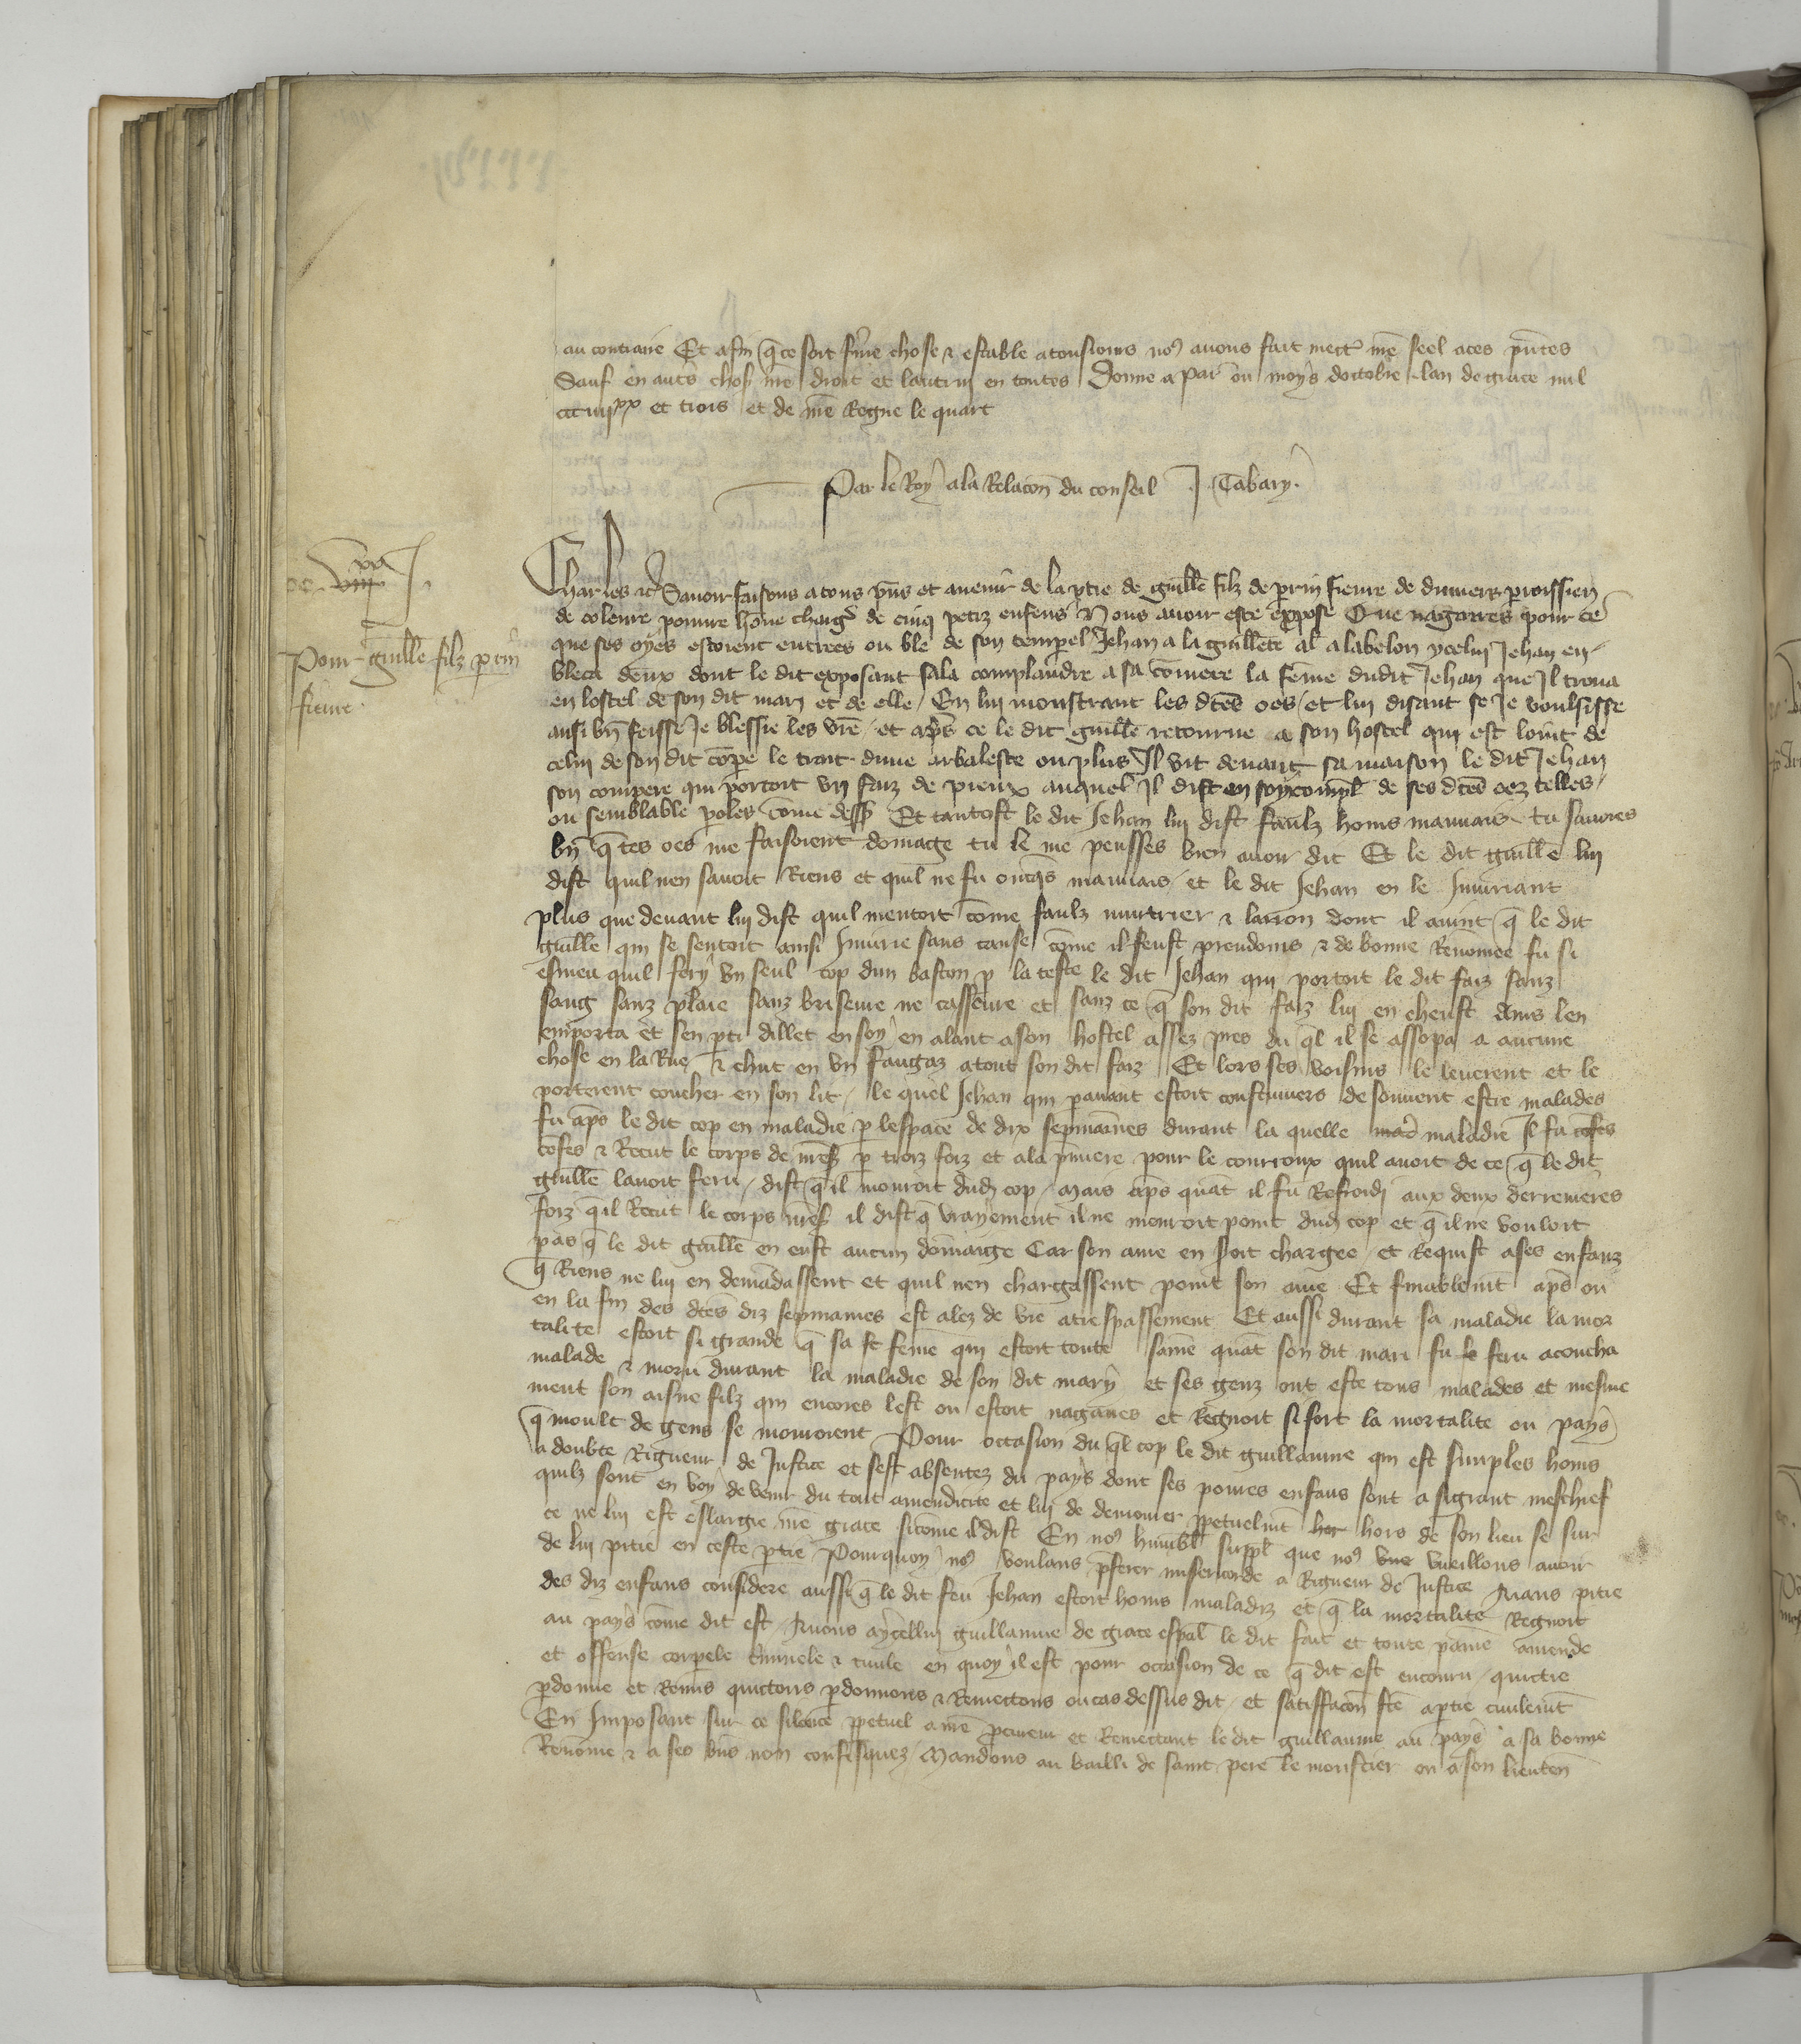 au contraire Et afin q̄ ce soit ferme chose & estable a tousiours no9 auons fait mectre nr̄e seel a ces p̄ntes
Sauf en autres choses nr̄e droit et lautrui en toutes Donne a Par ou moys doctobre lan de grace mil
ccc iiijxx et trois et de nr̄e Regne le quart
Par le Roy a la Relacion du conseil J. Tabary.
Pour guille filz perrin
fieure.
Charles &c Sauoir faisons a tous p̄ns et auenir de la p̄tie de guille filz de perrin fieure de parroissien
de poure hōme charge de cinq petiz enfens Nous auoir este expose Que nagaires pour ce
que ses oyes estoient entrees ou ble de son compere Jehan a la guillete al alabelon ycelui Jehan en
bleca deux dont le dit exposant sala complaindre a sa cōmere la fēme dudit Jehan que Il troua
en lostel de son dit mary et de elle / En lui monstrant les dictes oes / et lui disant se Je voulsisse
ausi bn̄ feisse Je blessie les vr̄e / et ap̄s ce le dit guille retourne a son hostel qui est loing de
celui de son dit cōpere le trait dune arbaleste ou plus Il vit deuant sa maison le dit Jehan
son compere qui portoit vn faiz de pieux auquel Il dist en soy compl̄ de ses dictes oez telles /
ou semblable p̄oles cōme dess9 Et tantost le dit Jehan lui dist faulz homs mauuais tu sauoies
bn̄ q̄ tes oes me faisoient dōmage tu le me peusses bien auoir dit Et le dit guille lui
dist quil nen sauoit Riens et quil ne fu onq̄s mauuais / et le dit Jehan en le Iniuriant
plus que deuant lui dist quil mentoit cōme faulz murtrier & larron dont il auint q̄ le dit
guille qui se sentoit ainsi Iniurie sans cause cōme il feust preudoms & de bonne Renomee fu si
esmeu quil fery vn seul cop dun baston p̱ la teste le dit Jehan qui portoit le dit faiz sanz
sang sanz plaie sanz briseure ne casseure et sanz ce q̄ son dit faiz lui en cheust ains len
emporta et sen p̱ti dillec en soy en alant a son hostel assez pres du q̄l il se assopa a aucune
chose en la Rue & chut en vn fangaz atout son dit faiz Et lors ses voisins le leuerent et le
porterent coucher en son lit / le quel Jehan qui parauant estoit coustumiers de souuent estre malades
fu ap̄s le dit cop en maladie p̱ lespace de dix sepmaines durant la quelle mad maladie Il fu cōfes
cōfes & Recut le corps de nr̄es p̱ troiz foiz et a la p̄miere pour le courroux quil auoit de ce q̄ le dit
guille lauoit feru / dist q̄ il mouroit dud cop / Mais ap̄s quāt il fu Refroidi aux deux derrenieres
foiz q̄il Recut le corps nr̄es il dist q̄ vrayement il ne mouroit point dud cop et q̄ il ne vouloit
pas q̄ le dit guille en eust aucun dōmaige Car son ame en soit chargee / et Requist a ses enfanz
q̄ Riens ne lui en demādassent et quil nen chargassent point son ame Et finablemt ap̄s ou
en la fin des dictes diz sepmaines est alez de vie a trespassement Et aussi durant sa maladie la mor
talite estoit si grande q̄ sa fē feme qui estoit toute saine quāt son dit mari fu fe feru acoucha
malade & moru durant la maladie de son dit mary et ses genz ont este tous malades et mesme
ment son aisne filz qui encores lest ou estoit nagaires et Regnoit si fort la mortalite ou pays
q̄ moult de gens se mouroient Pour occasion du q̄l cop le dit guillaume qui est simples homs
a doubte Rigueur de Justice et sest absentez du pays dont ses poures enfans sont a si grant meschief
quilz sont en voy de venir du tout a mendicite et lui de demourer p̱petuelmt hor hors de son lieu se sur
ce ne lui est eslargie nr̄e grace sicōme il dist En no9 humbl̄ suppl̄ que no9 vue vueillons auoir
de lui pitie en ceste p̱tie Pourquoy no9 voulans p̄ferer misericorde a Rigueur de Justice Aians pitie
des diz enfans considere aussi q̄ le dit feu Jehan estoit homs maladiz et q̄ la mortalite Regnoit
au pays cōme dit est Auons a ycellui guillaume de grace esp̄al le dit fait et toute paine amende
et offense corporele criminele & ciuile en quoy il est pour occasion de ce q̄ dit est encouru / quictie
p̱donne et Remis quictons p̱donnons & Remectons ou cas dessus dit / et satisfacion fc̄e a p̱tie ciuilemt
En Imposant sur ce silence p̱petuel a nr̄e procureur et Remectant le dit guillaume au pays a sa bonne
Renōme & a ses bn̄s non confisquez / Mandons au bailli de saint pere le moustier ou a son lieuten̄